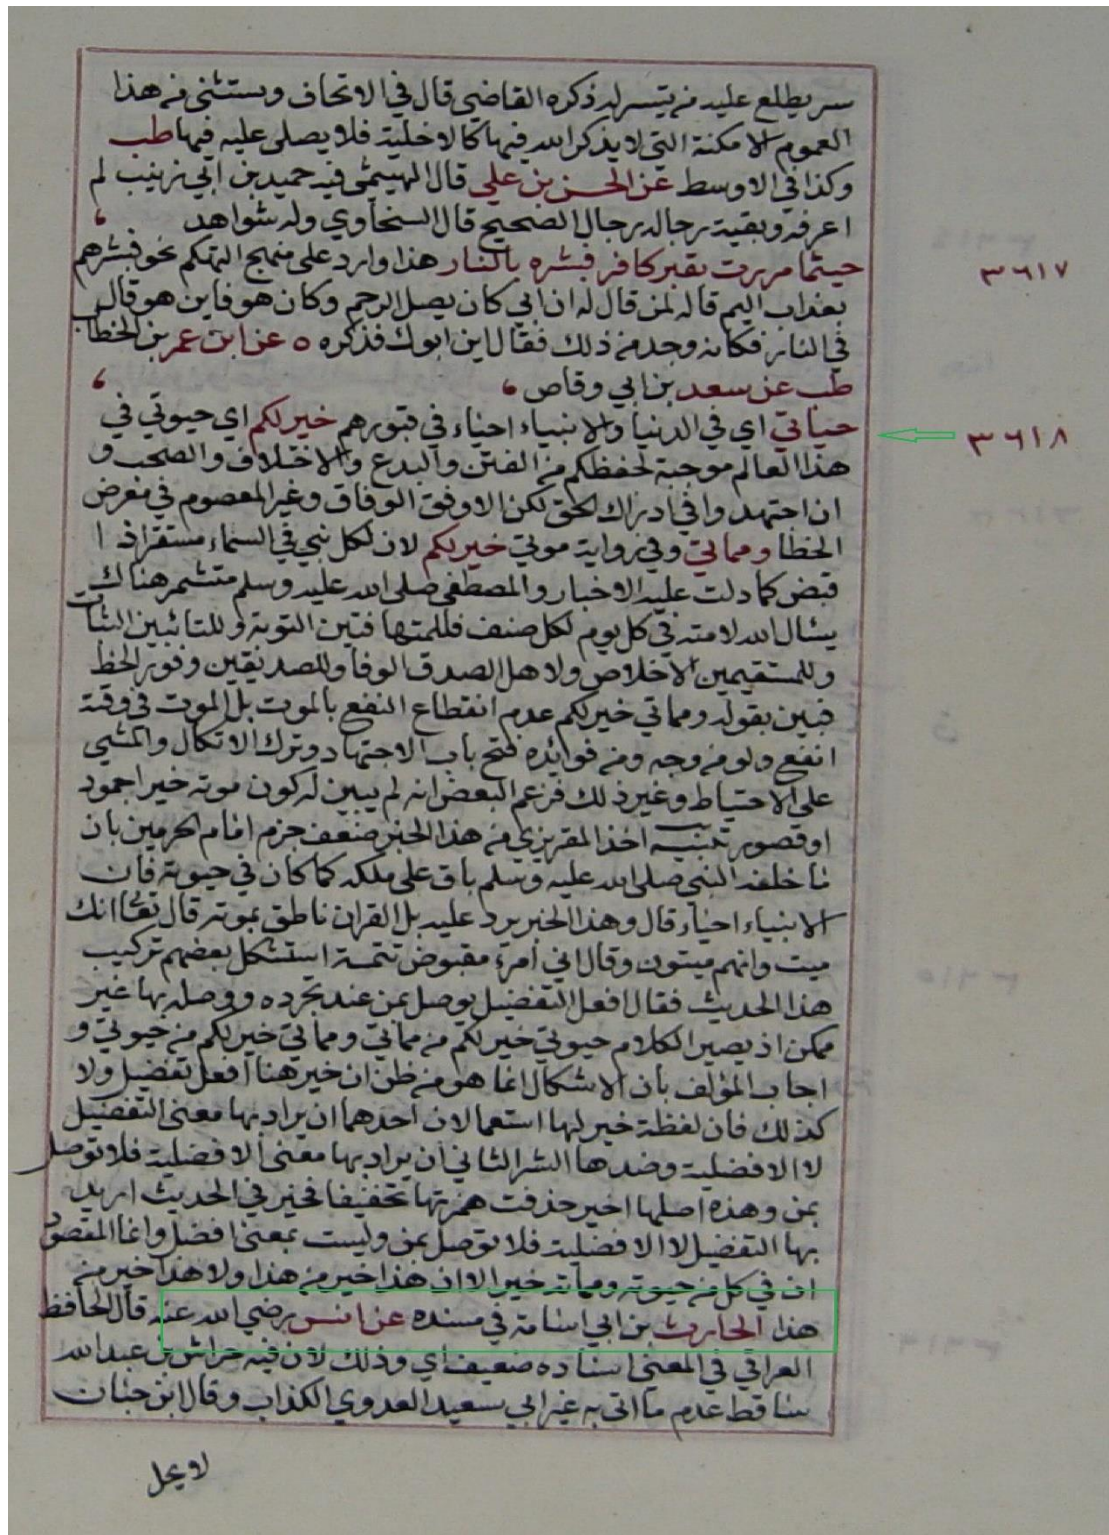 سر يطلع عليه من يتيسر له ذكره القاضي قال في الاتحاف ويستثنى من هذا
العموم الامكنة التي لا يذكر الله فيها كالاخلية فلا يصلى عليه فيها طب
وكذا في الاوسط عن الحسن بن علي قال الهيثمي فيه حميد بن ابي زينب لم
اعرفه وبقية رجاله رجال الصحيح قال السخاوي وله شواهد
حيثما مررت بقبر كافر فبشره بالنار هذا وارد على منهج التهكم نحو فبشرهم
٣٦١٧
بعذاب اليم قاله لمن قال له ان ابي كان يصل الرحم وكان هو فاين هو قال
في النار فكانه وجد من ذلك فقال اين ابوك فذكره ه عن ابن عمر بن الخطاب
طب عن سعد بن ابي وقاص
حياتي اي في الدنيا والانبياء احياء في قبورهم خير لكم اي حيوتي في
٣٦١٨
هذا العالم موجبة لحفظكم من الفتن والبدع والاختلاف والصحب و
ان اجتهدوا في ادراك الحق لكن الاوفق الوفاق وغير المعصوم في معرض
الخطا ومماتي وفي رواية موتي خير لكم لان لكل نبي في السماء مستقر اذ ا
قبض كما دلت عليه الاخبار والمصطفى صلى الله عليه وسلم مستمر هناك
يسال الله لامته في كل يوم لكل صنف فللمتهافتين التوبة وللتائبين الثبات
وللمستقيمين الاخلاص ولاهل الصدق الوفا وللصديقين وفور الحظ
فبين بقوله ومماتي خير لكم عدم انقطاع النفع بالموت بل الموت في وقته
انفع ولو من وجه ومن فوائده فتح باب الاجتهاد وترك الاتكال والمشي
على الاحتياط وغير ذلك فزعم البعض انه لم يبين له كون موته خيرا جمود
او قصور تنبيه اخذ المقريزي من هذا الخبر ضعف جزم امام الحرمين بان
ما خلفه النبي صلى الله عليه وسلم باق على ملكه كما كان في حيوته فان
الانبياء احياء قال وهذا الخبر يرد عليه بل القران ناطق بموته قال تعا انك
ميت وانهم ميتون وقال اني امرء مقبوض تتمة استشكل بعضهم تركيب
هذا الحديث فقال افعل التفضيل يوصل بمن عند تجرده ووصله بها غير
ممكن اذ يصير الكلام حيوتي خير لكم من مماتي ومماتي خير لكم من حيوتي و
اجاب المؤلف بان الاشكال انما هو من ظن ان خير هنا افعل تفضيل ولا
كذلك فان لفظة خير لها استعمالان احدهما ان يراد بها معنى التفضيل
لا الافضلية وضدها الشر الثاني ان يراد بها معنى الافضلية فلا توصل
بمن وهذه اصلها اخير حذفت همزتها تخفيفا فخير في الحديث اريد
بها التفضيل لا الافضلية فلا توصل بمن وليست بمعنى افضل وانما المقصود
ان في كل من حيوته ومماته خير الا ان هذا خير من هذا ولا هذا خير من
هذا الحارث بن ابي اسامة في مسنده عن انس رضي الله عنه قال الحافظ
العراقي في المغني اسناده ضعيف اي وذلك لان فيه خراش بن عبد الله
ساقط عدم ما اتى به غير ابي سعيد العدوي الكذاب وقال ابن حبان
لا يحل